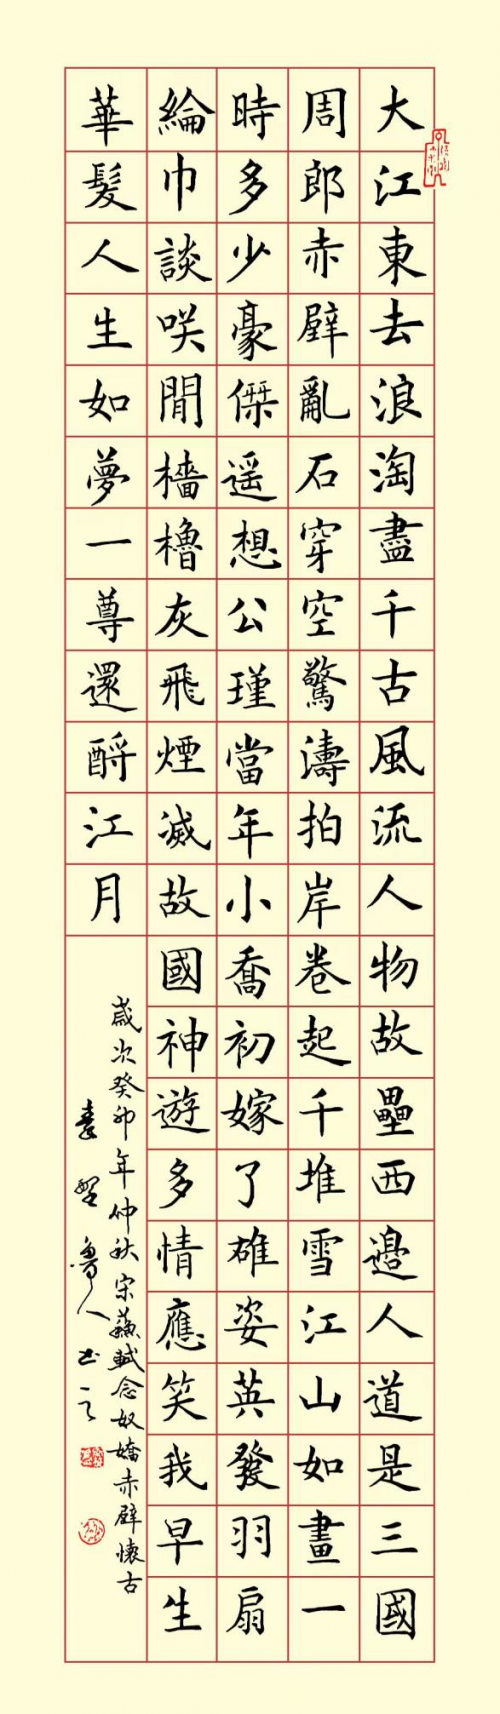 大江東去浪淘盡千古風流人物故壘西邉人道是三國
周郎赤壁亂石穿空驚濤拍岸卷起千堆雪江山如畫一
時多少豪傑遥想公瑾當年小喬初嫁了雄姿英發羽扇
綸巾談咲閒檣櫓灰飛煙滅故國神遊多情應笑我早生
華髮人生如夢一尊還酹江月
歲次癸卯年仲秋宋蘇軾念奴嬌赤壁懷古
魯人书